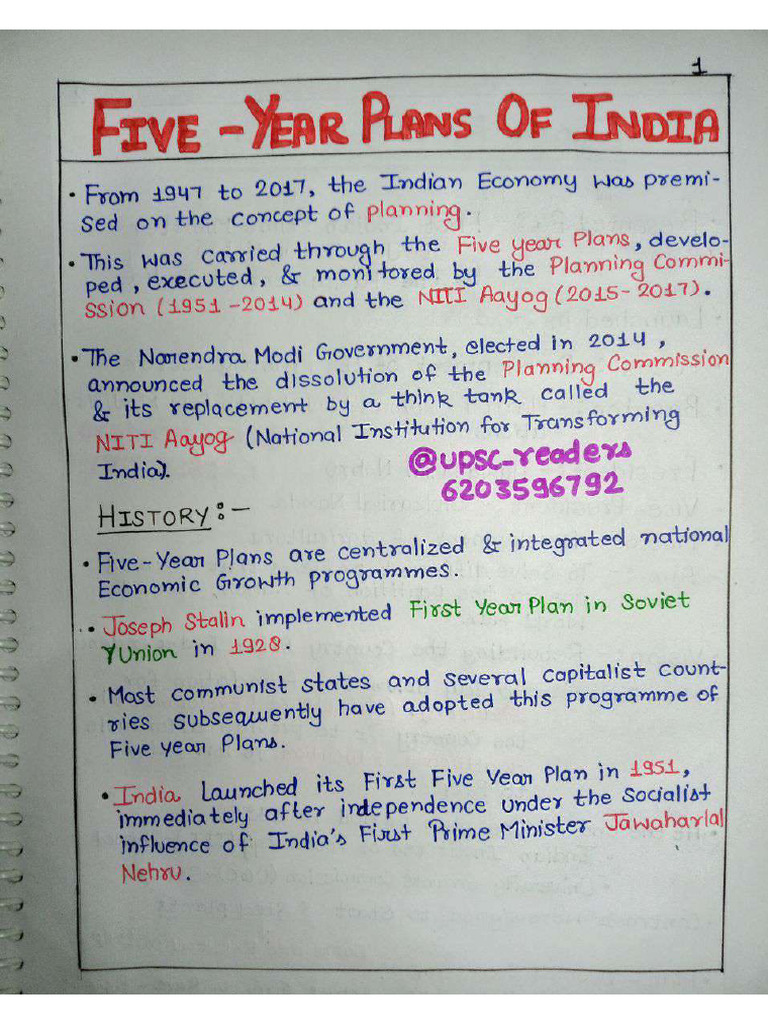 1
FIVE - YEAR PLANS OF INDIA
• From 1947 to 2017, the Indian Economy was premi-
sed on the concept of planning.
• This was carried through the Five year Plans, develo-
ped, executed, & monitored by the Planning Commi-
ssion (1951 - 2014) and the NITI Aayog (2015- 2017).
• The Narendra Modi Government, elected in 2014,
announced the dissolution of the Planning Commission
& its replacement by a think tank called the
NITI Aayog (National Institution for Transforming
India).
@upsc_readers
6203596792
HISTORY:-
• Five-Year Plans are centralized & integrated national
Economic Growth programmes.
• Joseph Stalin implemented First Year Plan in Soviet
Union in 1928.
• Most communist states and several capitalist count-
ries subsequently have adopted this programme of
Five year Plans.
• India launched its First Five Year Plan in 1951,
immediately after independence under the Socialist
influence of India's First Prime Minister Jawaharlal
Nehru.